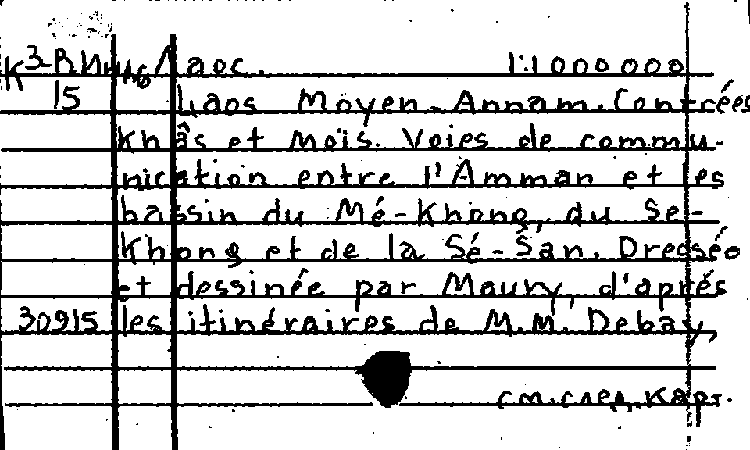 К 3-Вино Лаос. 1:1 000 000
15 Laos Moyen-Annam. Contrées
Khâs et Moïs. Voies de commu-
nication entre l'Amman et les
bassin du Mé-Khong, du Se-
Khong et de la Sé-Ŝan. Dressée
et dessinée par Maury, d'aprés
30915 les itinéraires de M.M. Debay,
см. след. карт.